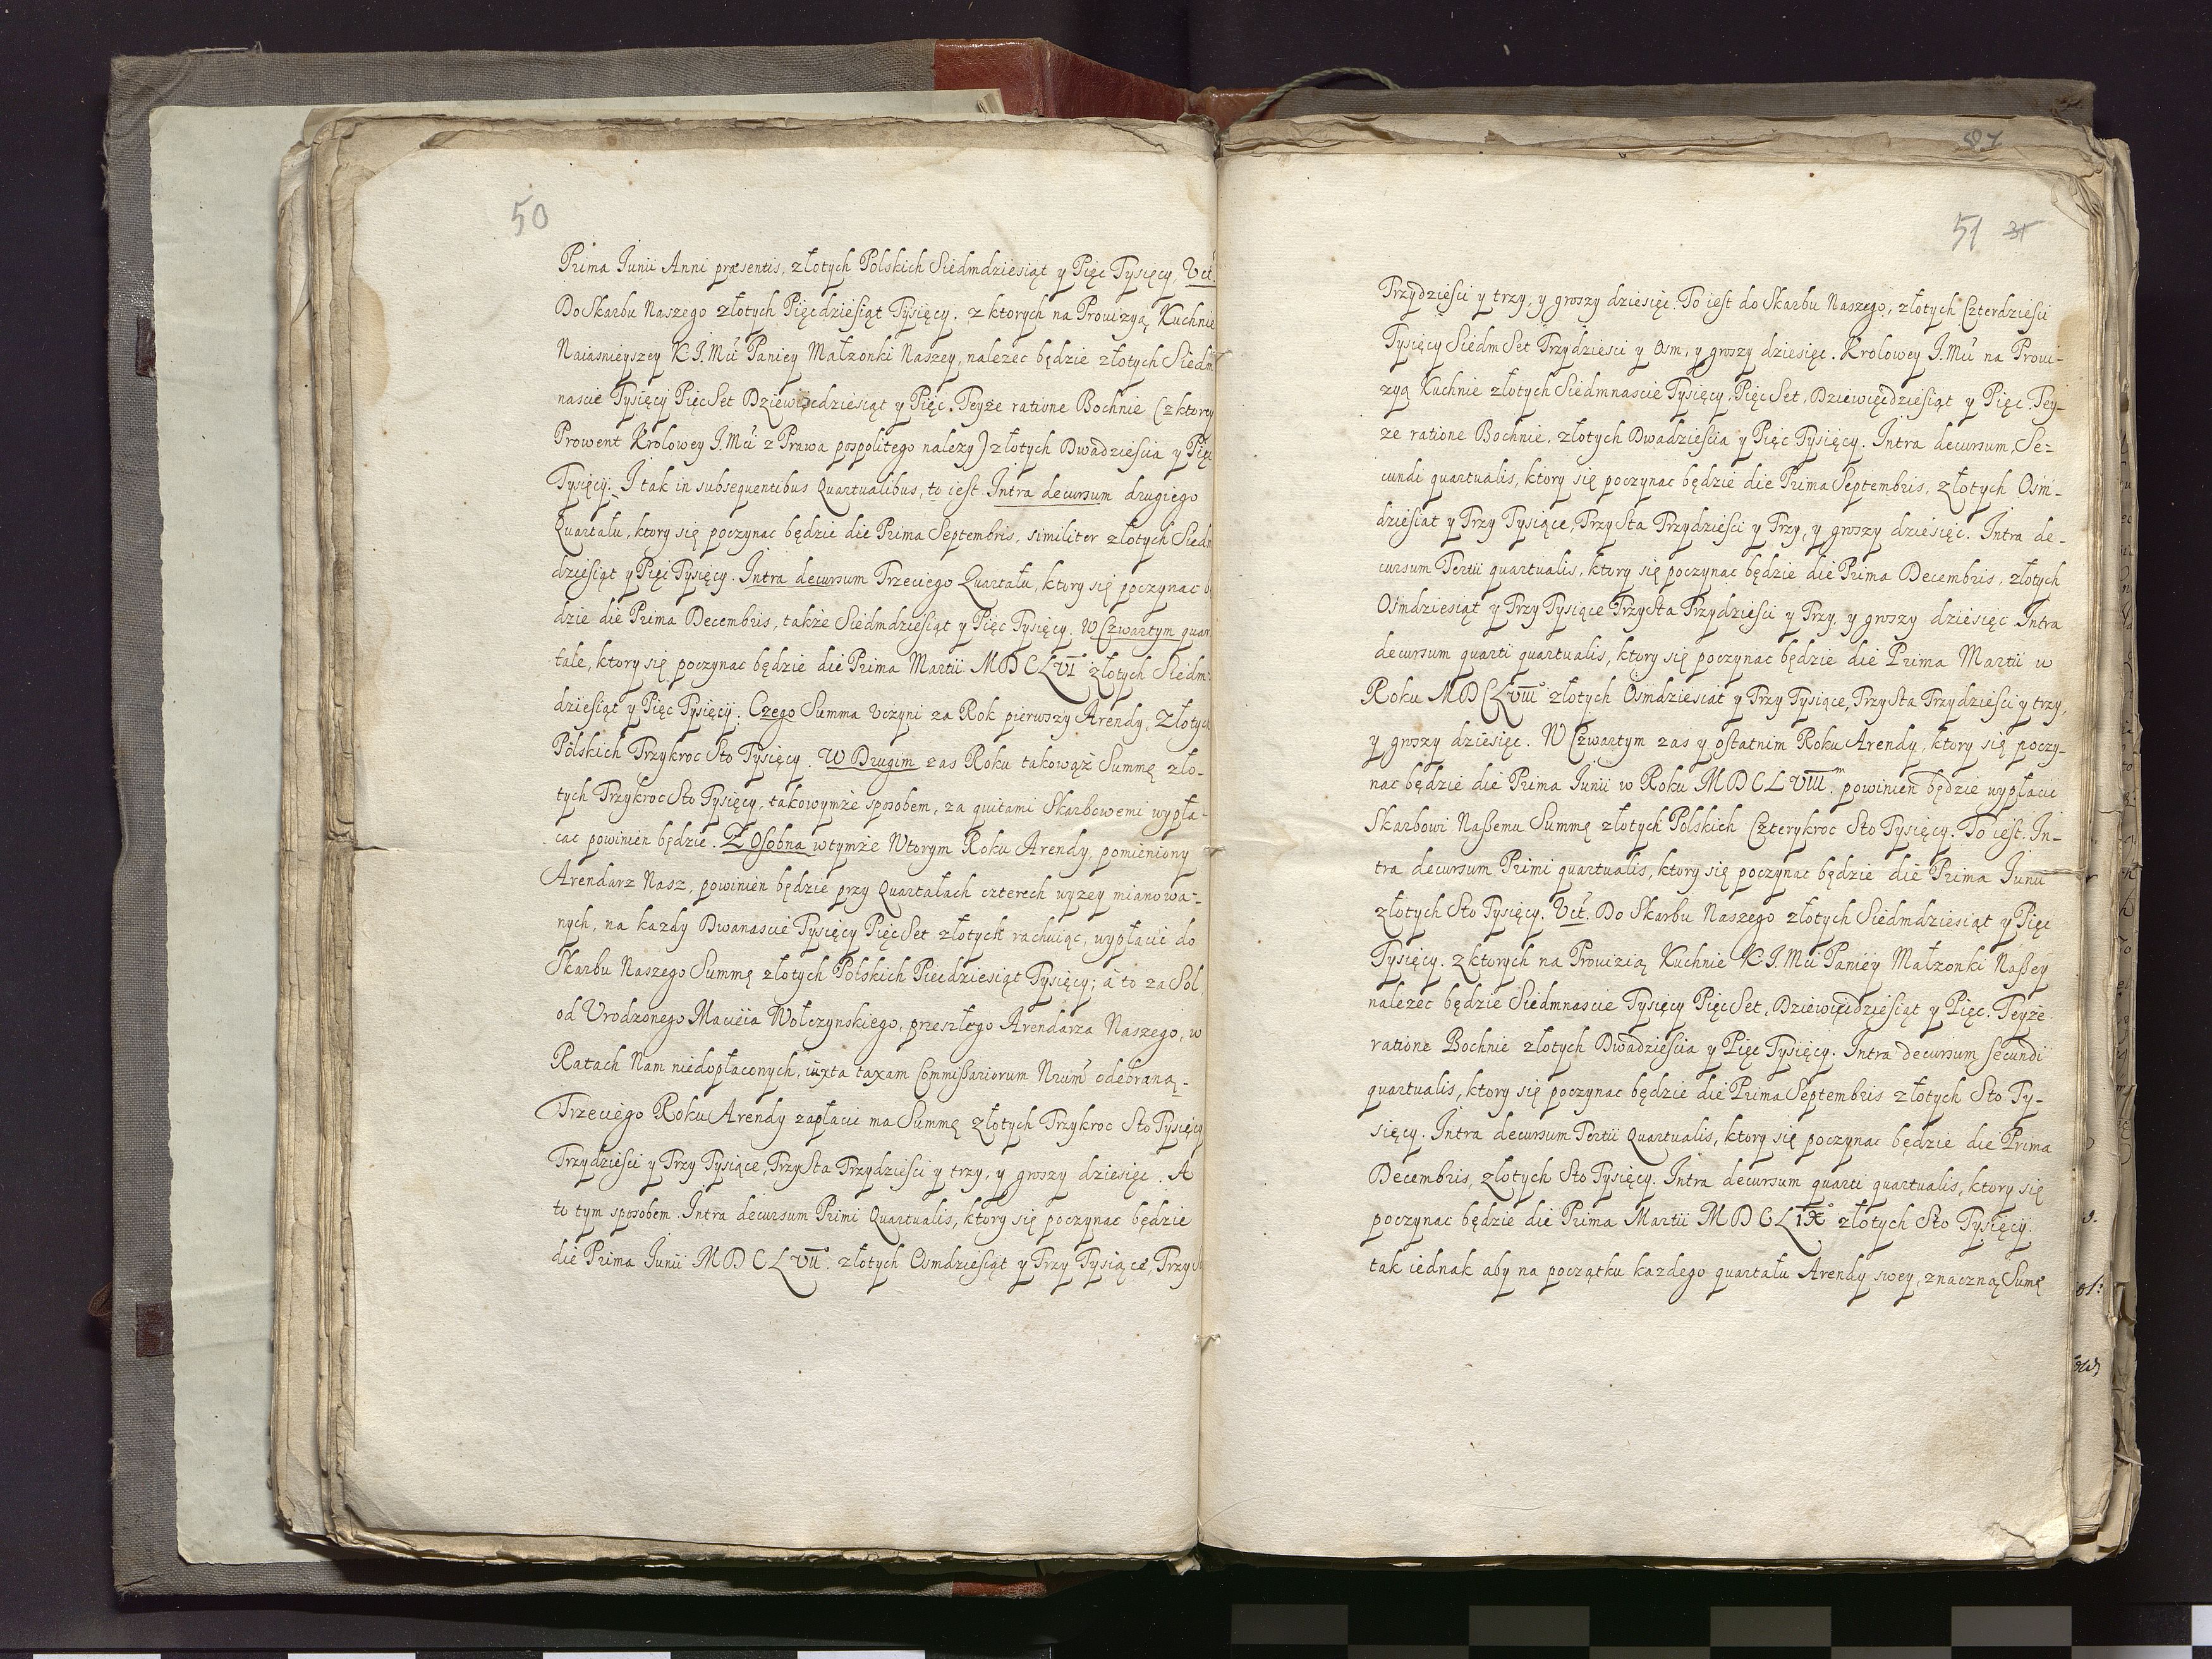 50
Prima Junii Anni præsentis, złotych Polskich Siedmdziesiąt y Pięc Tysięcy, Vct.
Do Skarbu Naszego złotych Pięcdziesiąt Tysięcy. z ktorych na Prouizyą Kuchnie
Naiasnieyszey K.J.Mci Paniey Małzonki Naszey, nalezec będzie złotych Siedm
nascie Tysięcy Pięc Set Dziewięcdziesiąt y Pięc. Teyze ratione Bochnie (z ktorey
Prowent Krolowey J.Mci z Prawa pospolitego nalezy) złotych Dwadziescia y Pięc
Tysięcy. J tak in subsequentibus Quartualibus, to iest. Intra decursum drugiego
Quartału, ktory się poczynac będzie die Prima Septembris, similiter złotych Siedm
dziesiąt y Pięc Tysięcy. Intra decursum Trzeciego Quartału, ktory się poczynac bę
dzie die Prima Decembris, także Siedmdziesiąt y Pięc Tysięcy. W Czwartym quar
tale, ktory się poczynac będzie die Prima Martii MDCLVI° złotych Siedm:
dziesiąt y Pięc Tysięcy. Czego Summa Vczyni za Rok pierwszy Arendy, Złotych
Polskich Trzykroc Sto Tysięcy. W Drugim zas Roku takowąż Summę zło-
tych Trzykroc Sto Tysięcy, takowymże sposobem, za quitami Skarbowemi wypła-
cac powinien będzie. Z Osobna w tymże Wtorym Roku Arendy, pomieniony
Arendarz Nasz, powinien będzie przy Quartałach czterech wyzey mianowa-
nych, na kazdy Dwanascie Tysięcy Pięc Set złotych rachuiąc, wypłacic do
Skarbu Naszego Summę złotych Polskich Piecdziesiąt Tysięcy; a to za Sol,
od Vrodzonego Macieia Wołczynskiego, przeszłego Arendarza Naszego, w
Ratach Nam niedopłaconych, iuxta taxam Commißariorum Nrum odebraną.-
Trzeciego Roku Arendy zapłacic ma Summę złotych Trzykroc Sto Tysięcy
Trzydziesci y Trzy Tysiące, Trzy Sta Trzydziesci y trzy, y groszy dziesięc. A
to tym sposobem. Intra decursum Primi Quartualis, ktory się poczynac będzie
die Prima Junii MDCLVII°. złotych Osmdziesiąt y Trzy Tysiące, Trzy S
87
51 31
Trzydziesci y trzy, y groszy dziesięc. To iest do Skarbu Naszego, złotych Czterdziesci
Tysięcy Siedm Set Trzydziesci y Osm, y groszy dziesięc. Krolowey J.Mci na Proui-
zyą Kuchnie złotych Siedmnascie Tysięcy, Pięc Set, Dziewięcdziesiąt y Pięc. Tey-
ze ratione Bochnie, złotych Dwadziescia y Pięc Tysięcy. Intra decursum, Se-
cundi quartualis, ktory się poczynac będzie die Prima Septembris, złotych Osm-
dziesiat y Trzy Tysiące, Trzy Sta Trzydziesci y Trzy, y groszy dziesięc. Intra de-
cursum Tertii quartualis, ktory się poczynac będzie die Prima Decembris, złotych
Osmdziesiąt y Trzy Tysiące Trzy Sta Trzydziesci y Trzy, y groszy dziesięc Intra
decursum quarti quartualis, ktory się poczynac będzie die Prima Martii w
Roku MDCLVIII° złotych Osmdziesiąt y Trzy Tysiące, Trzy Sta Trzydziesci y trzy,
y groszy dziesięc. W Czwartym zas y ostatnim Roku Arendy, ktory się poczy-
nac będzie die Prima Junii w Roku MDCLVIII.m powinien będzie wypłacic
Skarbowi Naßemu Summę złotych Polskich Czterykroc Sto Tysięcy. To iest. In-
tra decursum Primi quartualis, ktory się poczynac będzie die Prima Junii
złotych Sto Tysięcy. Vct. Do Skarbu Naszego złotych Siedmdziesiąt y Pięc
Tysięcy. z ktorych na Prouizią Kuchnie K.J.Mci Paniey Małzonki Naßey
nalezec będzie Siedmnascie Tysięcy Pięc Set, Dziewięcdziesiąt y Pięc. Teyże
ratione Bochnie złotych Dwadziescia y Pięc Tysięcy. Intra decursum secundi
quartualis, ktory się poczynac będzie die Prima Septembris złotych Sto Ty-
sięcy. Intra decursum Tertii Quartualis, ktory się poczynac będzie die Prima
Decembris, złotych Sto Tysięcy. Intra decursum quarti quartualis, ktory się
poczynac będzie die Prima Martii MDCLIX° złotych Sto Tysięcy.
tak iednak aby na początku kazdego quartału Arendy swey, znaczną Sumę